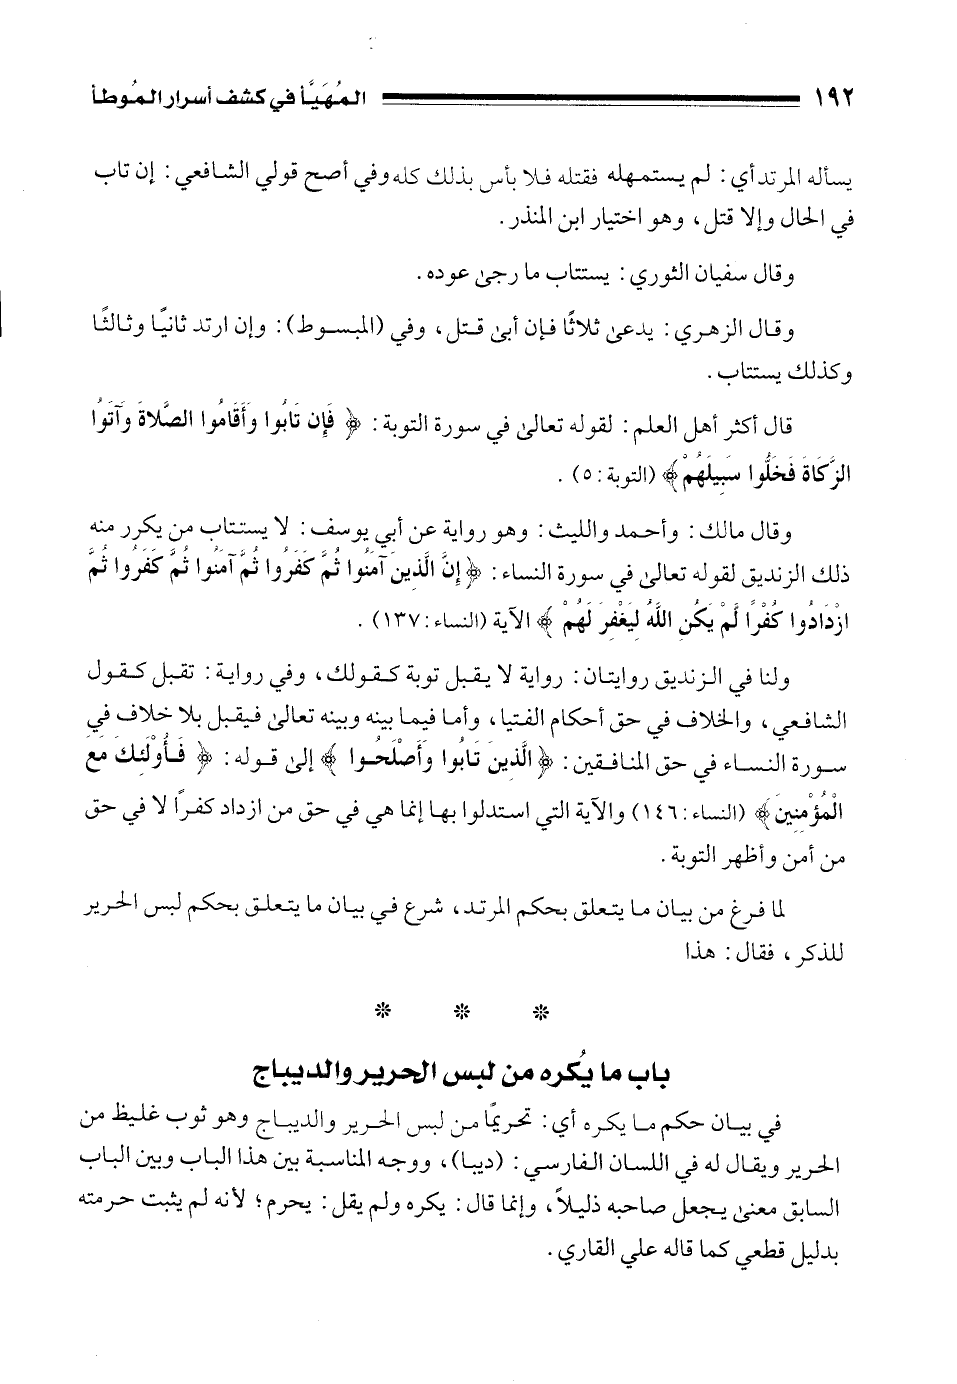 ١٩٢ المُهَيَّأ في كشف أسرار المُوطأ
يسأله المرتد أي: لم يستمهله فقتله فلا بأس بذلك كله وفي أصح قولي الشافعي: إن تاب
في الحال وإلا قتل، وهو اختيار ابن المنذر.
وقال سفيان الثوري: يستتاب ما رجىٰ عوده.
وقال الزهري: يدعىٰ ثلاثًا فإن أبىٰ قتل، وفي (المبسوط): وإن ارتد ثانيًا وثالثًا
وكذلك يستتاب.
قال أكثر أهل العلم: لقوله تعالىٰ في سورة التوبة: ﴿ فَإِن تَابُوا وَأَقَامُوا الصَّلاةَ وَآتَوُا
الزَّكَاةَ فَخَلُّوا سَبِيلَهُمْ ﴾ (التوبة: ٥).
وقال مالك: وأحمد والليث: وهو رواية عن أبي يوسف: لا يستتاب من يكرر منه
ذلك الزنديق لقوله تعالىٰ في سورة النساء: ﴿ إِنَّ الَّذِينَ آمَنُوا ثُمَّ كَفَرُوا ثُمَّ آمَنُوا ثُمَّ كَفَرُوا ثُمَّ
ازْدَادُوا كُفْرًا لَّمْ يَكُنِ اللَّهُ لِيَغْفِرَ لَهُمْ ﴾ الآية (النساء: ١٣٧).
ولنا في الزنديق روايتان: رواية لا يقبل توبة كقولك، وفي رواية: تقبل كقول
الشافعي، والخلاف في حق أحكام الفتيا، وأما فيما بينه وبينه تعالىٰ فيقبل بلا خلاف في
سورة النساء في حق المنافقين: ﴿ الَّذِينَ تَابُوا وَأَصْلَحُوا ﴾ إلىٰ قوله: ﴿ فَأُوْلَئِكَ مَعَ
الْمُؤْمِنِينَ ﴾ (النساء: ١٤٦) والآية التي استدلوا بها إنما هي في حق من ازداد كفرًا لا في حق
من أمن وأظهر التوبة.
لما فرغ من بيان ما يتعلق بحكم المرتد، شرع في بيان ما يتعلق بحكم لبس الحرير
للذكر، فقال: هذا
* * *
باب ما يُكره من لبس الحرير والديباج
في بيان حكم ما يكره أي: تحريمًا من لبس الحرير والديباج وهو ثوب غليظ من
الحرير ويقال له في اللسان الفارسي: (ديبا)، ووجه المناسبة بين هذا الباب وبين الباب
السابق معنىٰ يجعل صاحبه ذليلاً، وإنما قال: يكره ولم يقل: يحرم؛ لأنه لم يثبت حرمته
بدليل قطعي كما قاله علي القاري.